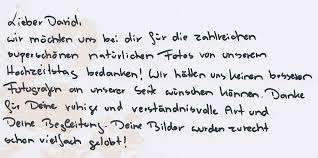 Lieber David,
wir möchten uns bei dir für die zahlreichen
superschönen natürlichen Fotos von unserem
Hochzeitstag bedanken! Wir hätten uns keinen besseren
Fotografen an unserer Seite wünschen können. Danke
für Deine ruhige und verständnisvolle Art und
Deine Begleitung. Deine Bilder wurden zurecht
schon vielfach gelobt!